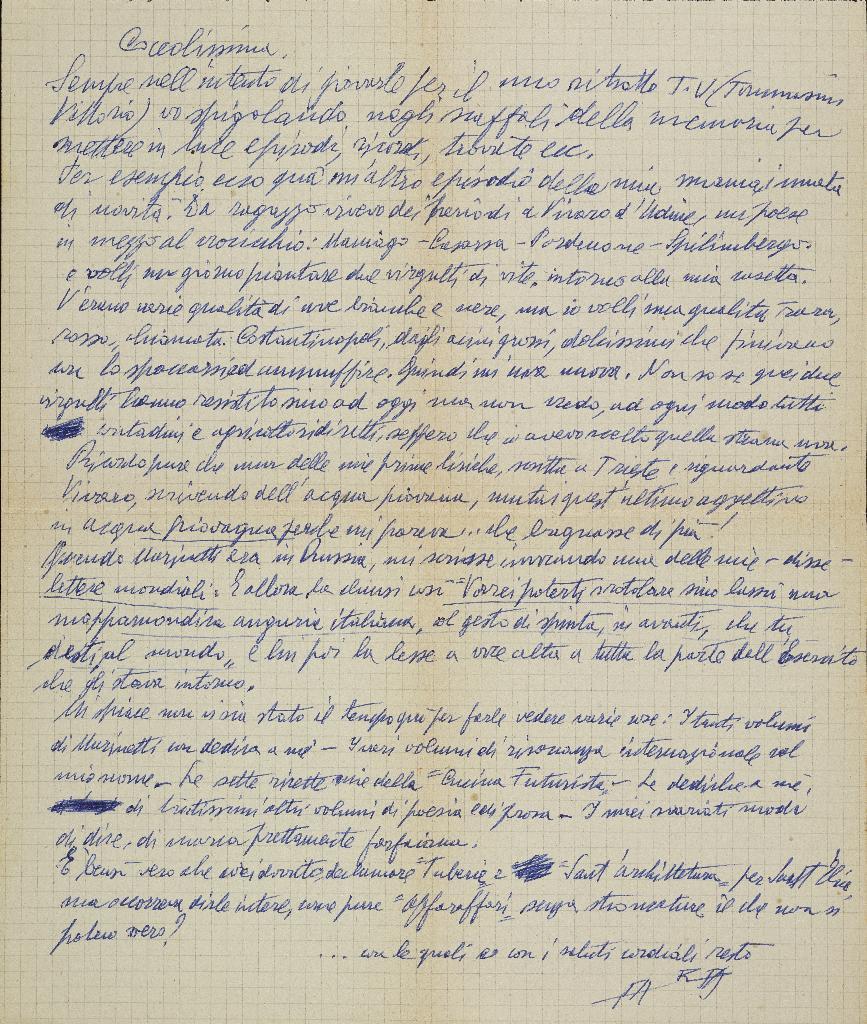 Carolissima,
Sempre nell'intento di giovarle per il mio ritratto T.V. (Tommasini
Vittorio) vo spigolando negli scaffali della memoria per
mettere in luce episodi, ricordi, trovate ecc.
Per esempio ecco qua un altro episodio della mia mania innata
di novità. Da ragazzo vivevo dei periodi a Vivaro d'Udine, un paese
in mezzo al crocicchio: Maniago - Casarsa - Pordenone - Spilimbergo.
e volli un giorno piantare due virgulti di vite, intorno alla mia casetta.
V'erano varie qualità di uve bianche e nere, ma io volli una qualità
rossa, chiamata: Costantinopoli, dagli acini grossi, dolcissimi che finivano
con lo spaccarsi ed ammuffire. Quindi mi uva nuova. Non so se quei due
virgulti hanno resistito sino ad oggi ma non credo, ad ogni modo tutti
contadini e agricoltori diretti, seppero che io avevo scelto quella strana uva.
Ricordo pure che una delle mie prime liriche, scritta a Trieste e riguardante
Vivaro, scrivendo dell'acqua piovana, mutai quest'ultimo aggettivo
in acqua piovagna perché mi pareva... che bagnasse di più!
Quando Marinetti era in Russia, mi scrisse invocando una delle mie - disse -
lettere mondiali: E allora la chiusi così "Vorrei poterti rotolare sino lassù una
mappamondica anguria italiana, col gesto di spinta, in avanti, che tu
desti al mondo" e lui poi la lesse a voce alta a tutta la parte dell'Esercito
che gli stava intorno.
Mi spiace non vi sia stato il tempo qui per farle vedere varie cose: I tanti volumi
di Marinetti con dedica a me - I vari volumi di risonanza internazionale col
mio nome - Le sette ricette mie della "Cucina Futurista" - Le dediche a me,
di tantissimi altri volumi di poesia e di prosa - I miei svariati modi
di dire, di marca prettamente farfaiana.
È bensì vero che incidevate "Tuberie" e "Sant'architettura" per Sant'Elia,
ma occorreva dirle intere, come pure "Affaraffari" senza stroncature il che non si
poteva vero?
... con le quali e con i saluti cordiali resto
FARFA